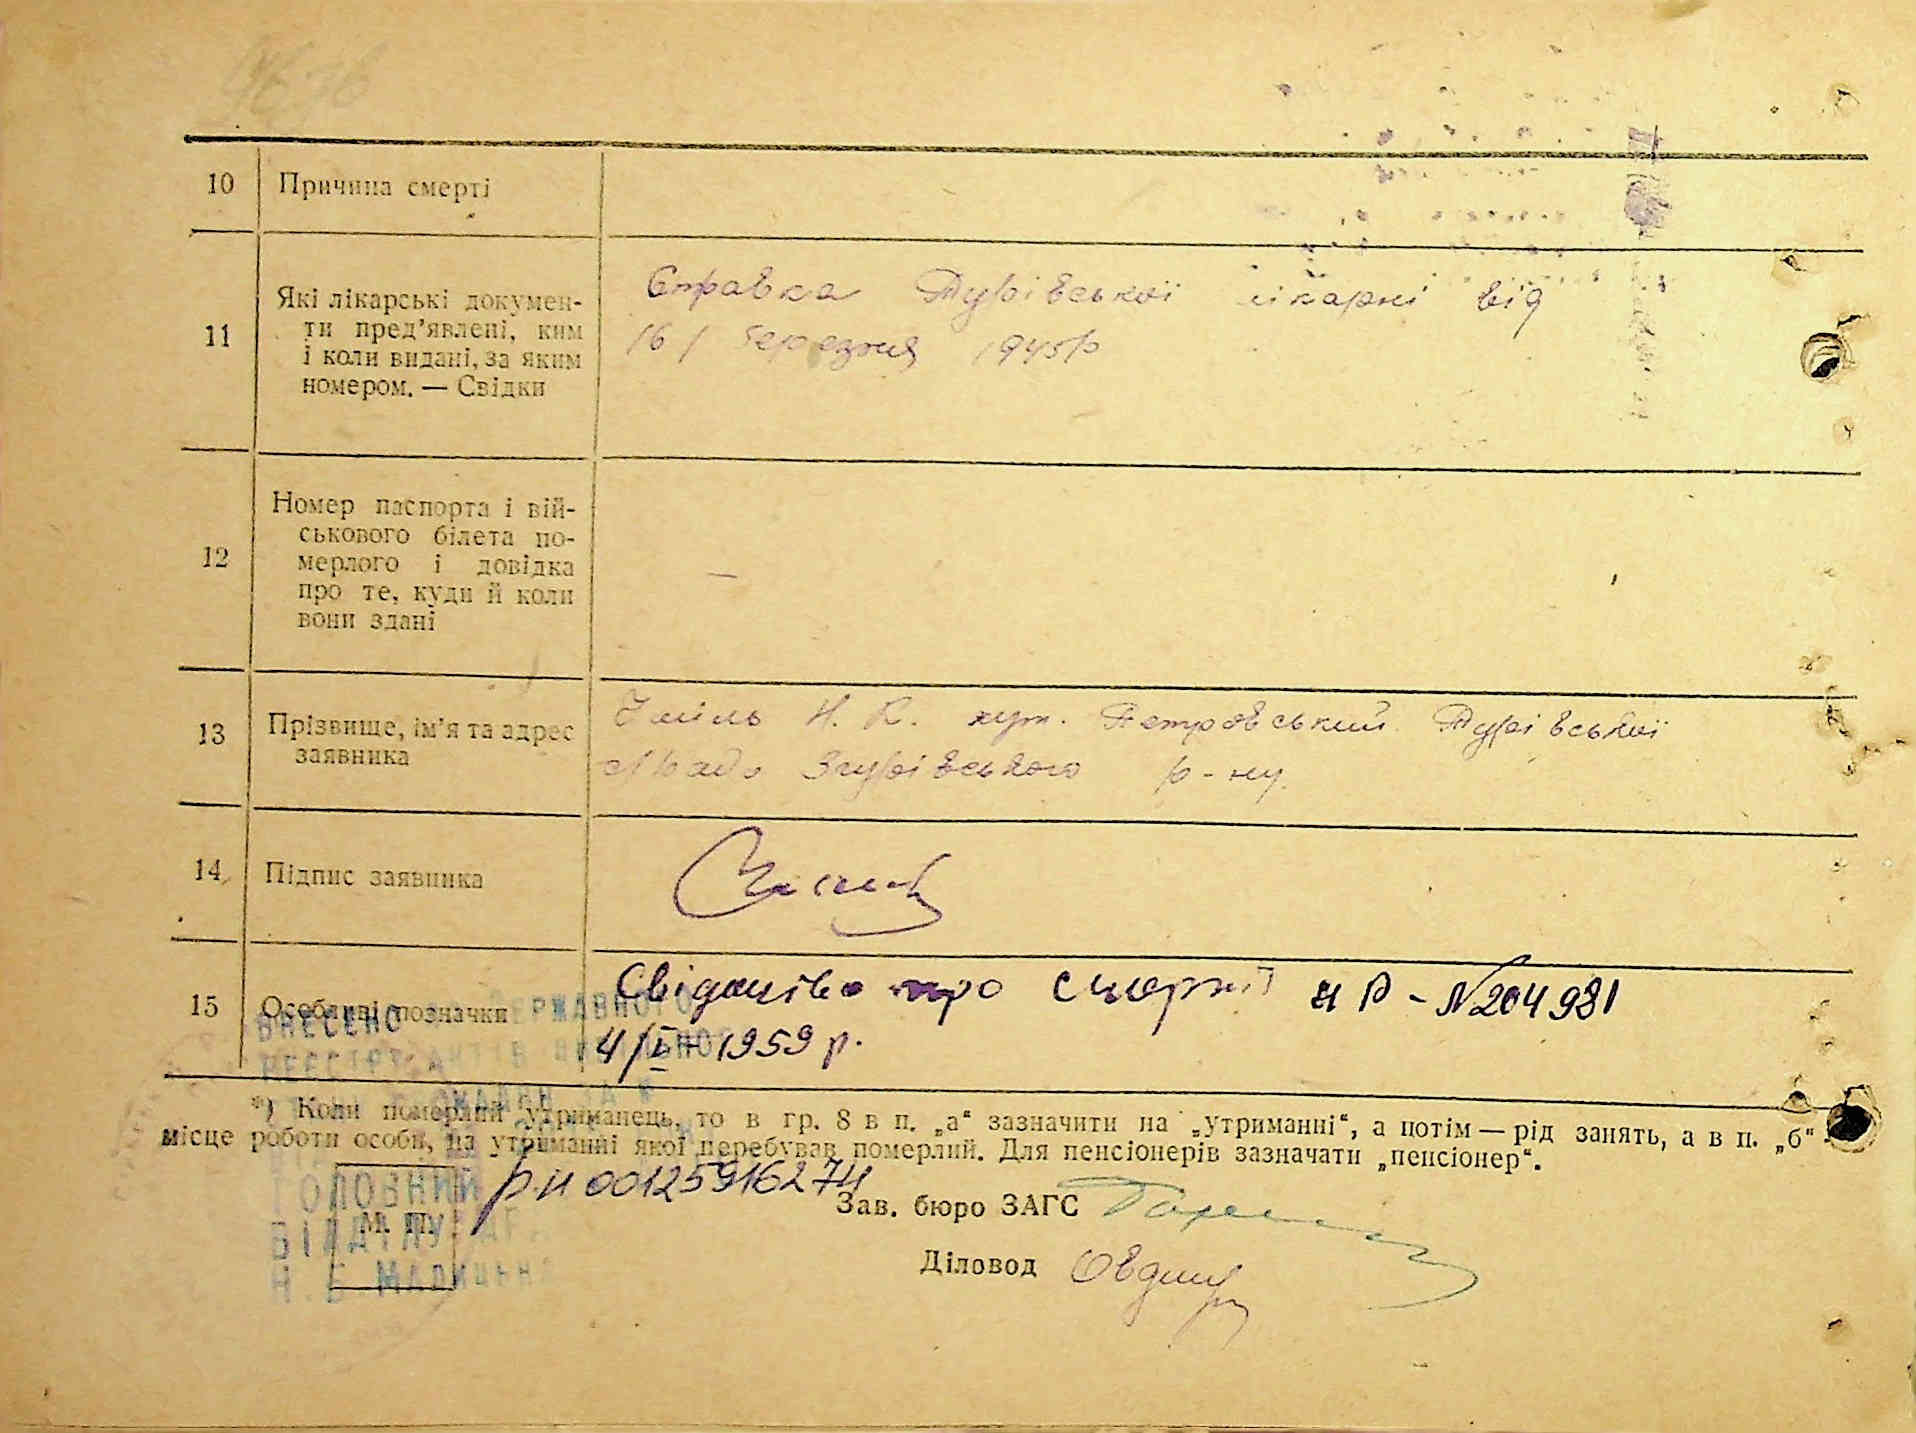 10 Причина смерті
11 Які лікарські докумен-
ти пред’явлені, ким
і коли видані, за яким
номером. — Свідки
Справка Турівської лікарні від
16/ березня 1945р
12 Номер паспорта і вій-
ськового білета по-
мерлого і довідка
про те, куди й коли
вони здані
—
13 Прізвище, ім’я та адрес
заявника
Н. К. хут. Петровський Турівської
с/Рада Згурівського р-ну.
14 Підпис заявника
15 Особливі позначки
Свідоцтво про смерть НР - №204981
4/ 1959 р.
ВНЕСЕНО ДО ДЕРЖАВНОГО
*) Коли померлий утриманець, то в гр. 8 в п. „а“ зазначити на „утриманні“, а потім — рід занять, а в п. „б“ -
місце роботи особи, на утриманні якої перебував померлий. Для пенсіонерів зазначати „пенсіонер“.
рн 00125916274
ГОЛОВНИЙ
М. П.
ВІДДІЛУ
Зав. бюро ЗАГС
Діловод